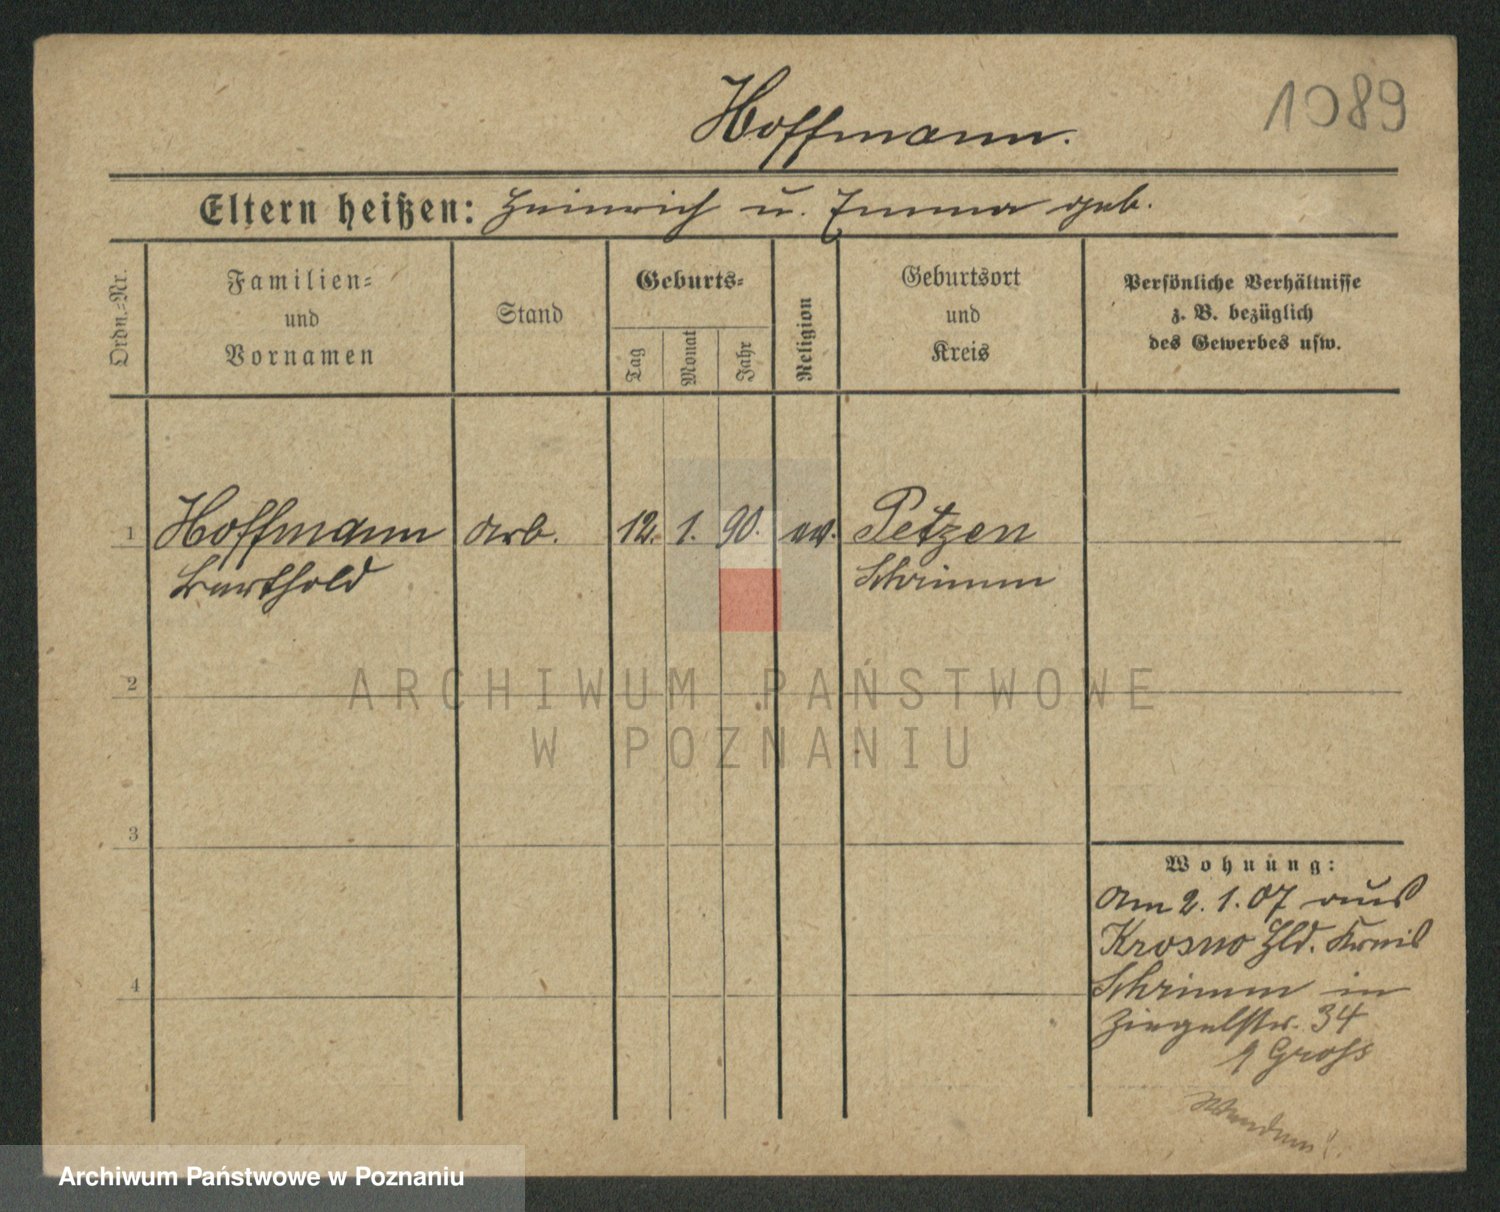 Hoffmann.
1089
Eltern heißen: Heinrich u. Emma geb.
Ordn.-Nr.
Familien-
und
Vornamen
Stand
Geburts-
Tag
Monat
Jahr
Religion
Geburtsort
und
Kreis
Persönliche Verhältnisse
z. B. bezüglich
des Gewerbes usw.
1 Hoffmann Arb. 12. 1. 90. ev. Petzen
Berthold Schrimm
2
ARCHIWUM PAŃSTWOWE
W POZNANIU
3
Wohnung:
Am 2. 1. 07 aus
Krosno Hld. Kreis
Schrimm in
Ziegelstr. 34
Gross
4
Wenden!
Archiwum Państwowe w Poznaniu